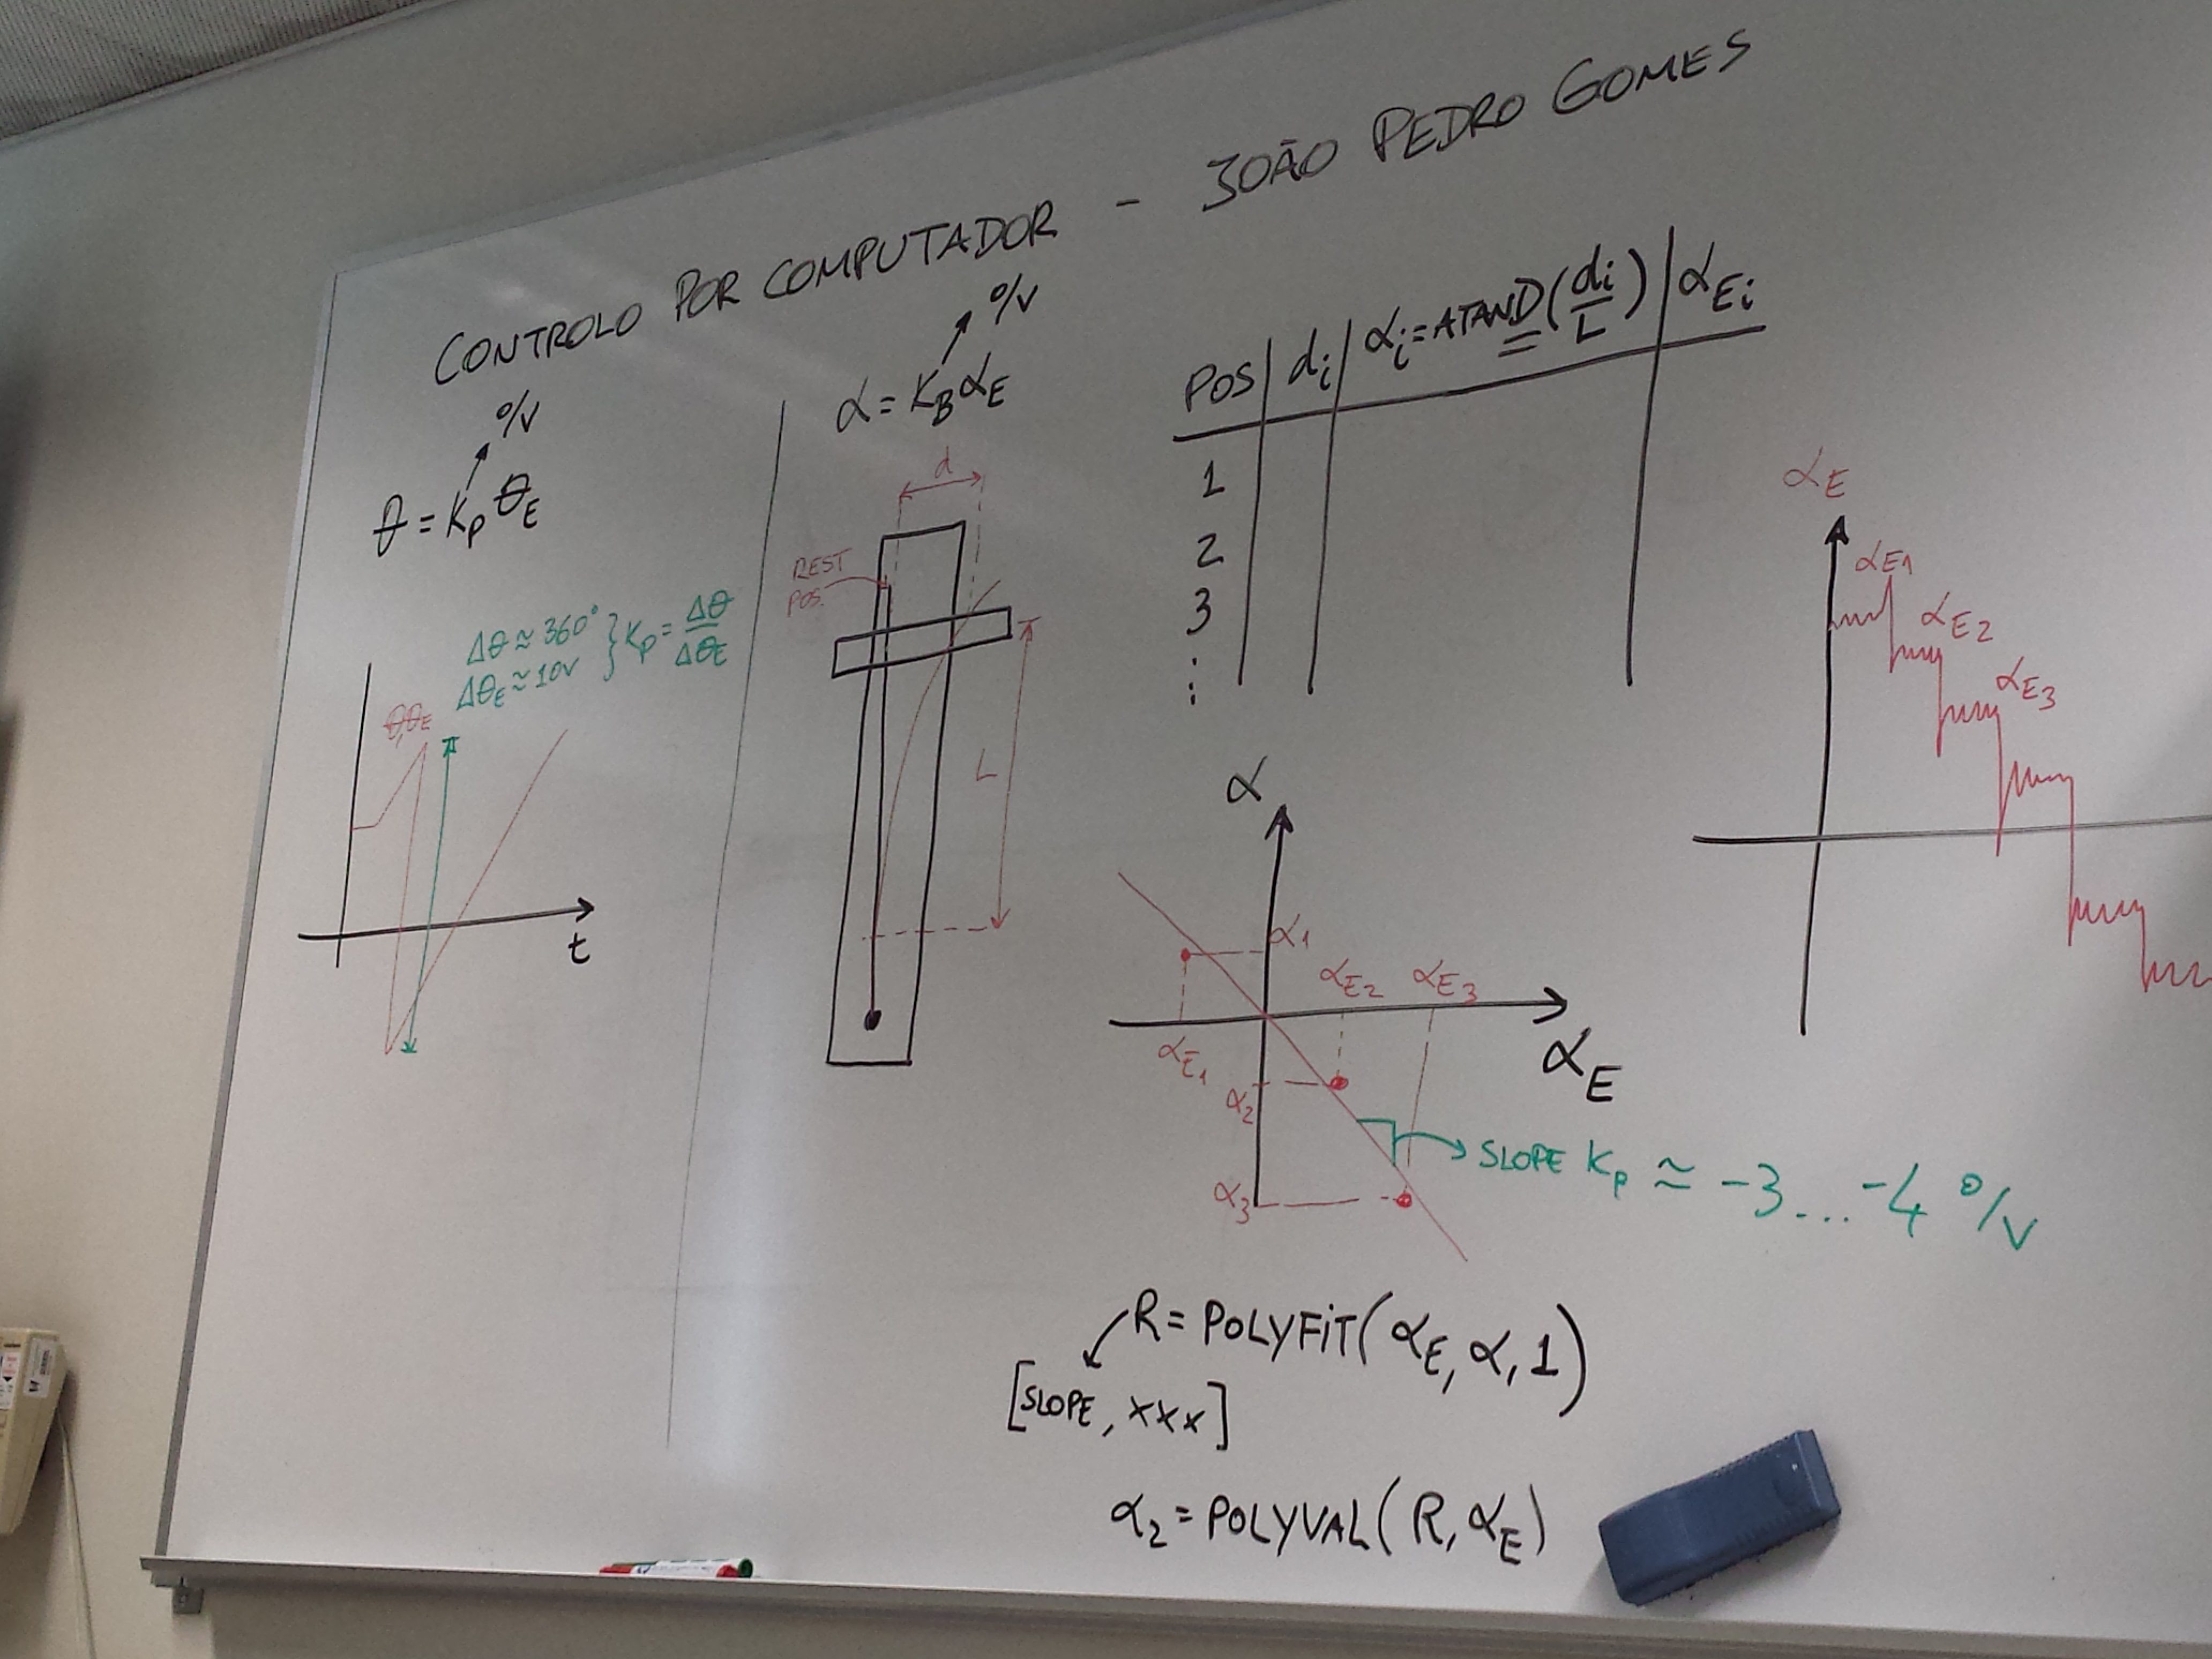 CONTROLO POR COMPUTADOR - JOÃO PEDRO GOMES
º/V
θ = Kp θE
Δθ ≈ 360°
ΔθE ≈ 10V
} Kp = Δθ/ΔθE
θ,θE
t
º/V
α = KB αE
d
REST
POS.
L
POS | di | αi = ATAND(di/L) | αEi
1
2
3
⋮
αE
αE1
αE2
αE3
α
α1
αE2
αE3
αE1
αE
α2
α3
SLOPE Kp ≈ -3... -4 º/V
R = POLYFIT(αE, α, 1)
[SLOPE, xxx]
α2 = POLYVAL(R, αE)